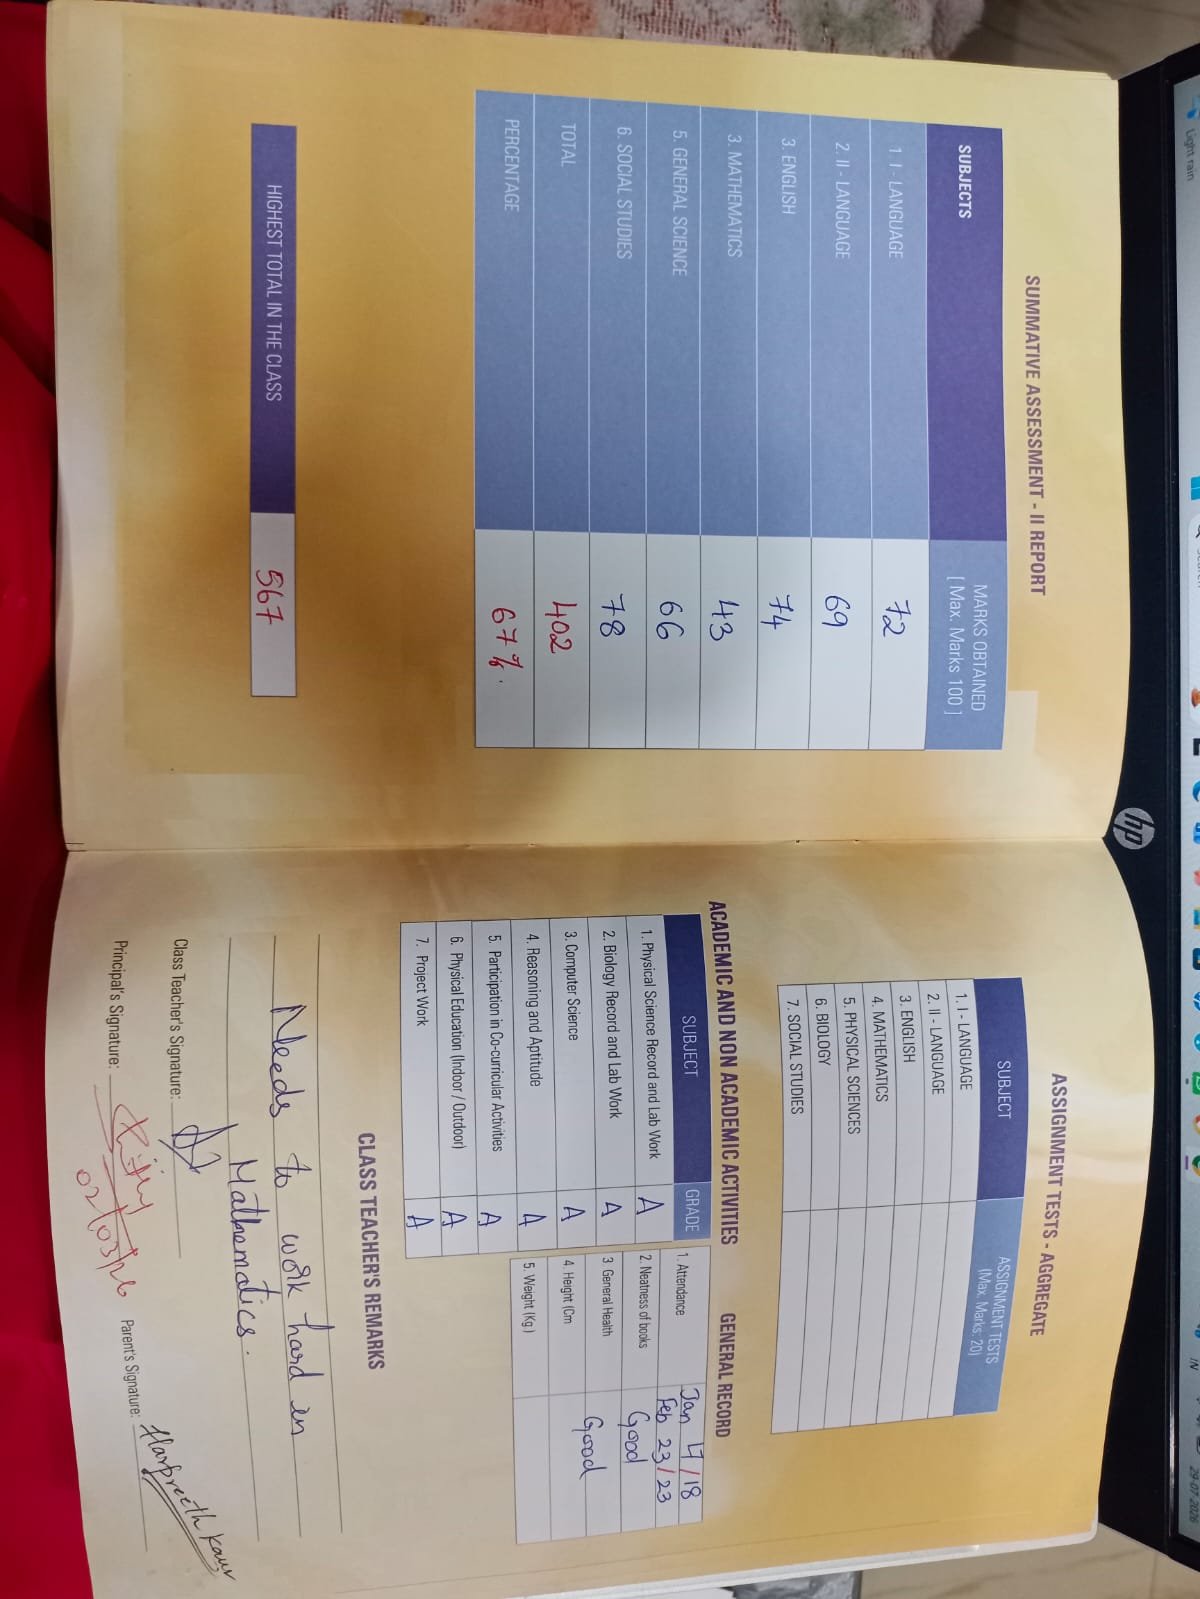 SUMMATIVE ASSESSMENT - II REPORT
SUBJECTS MARKS OBTAINED
[ Max. Marks 100 ]
1. I - LANGUAGE 72
2. II - LANGUAGE 69
3. ENGLISH 74
3. MATHEMATICS 43
5. GENERAL SCIENCE 66
6. SOCIAL STUDIES 78
TOTAL 402
PERCENTAGE 67%.
HIGHEST TOTAL IN THE CLASS 567
ASSIGNMENT TESTS - AGGREGATE
SUBJECT ASSIGNMENT TESTS
(Max. Marks: 20)
1. I - LANGUAGE
2. II - LANGUAGE
3. ENGLISH
4. MATHEMATICS
5. PHYSICAL SCIENCES
6. BIOLOGY
7. SOCIAL STUDIES
ACADEMIC AND NON ACADEMIC ACTIVITIES
SUBJECT GRADE
1. Physical Science Record and Lab Work A
2. Biology Record and Lab Work A
3. Computer Science A
4. Reasoning and Aptitude A
5. Participation in Co-curricular Activities A
6. Physical Education (Indoor / Outdoor) A
7. Project Work A
GENERAL RECORD
1. Attendance Jan 17/18
Feb 23/23
2. Neatness of books Good
3 General Health Good
4. Height (Cm
5. Weight (Kg)
CLASS TEACHER'S REMARKS
Needs to work hard in
Mathematics.
Class Teacher's Signature:
Principal's Signature: 02/03/26
Parent's Signature: Harpreeth Kaur
hp
Light rain
IN